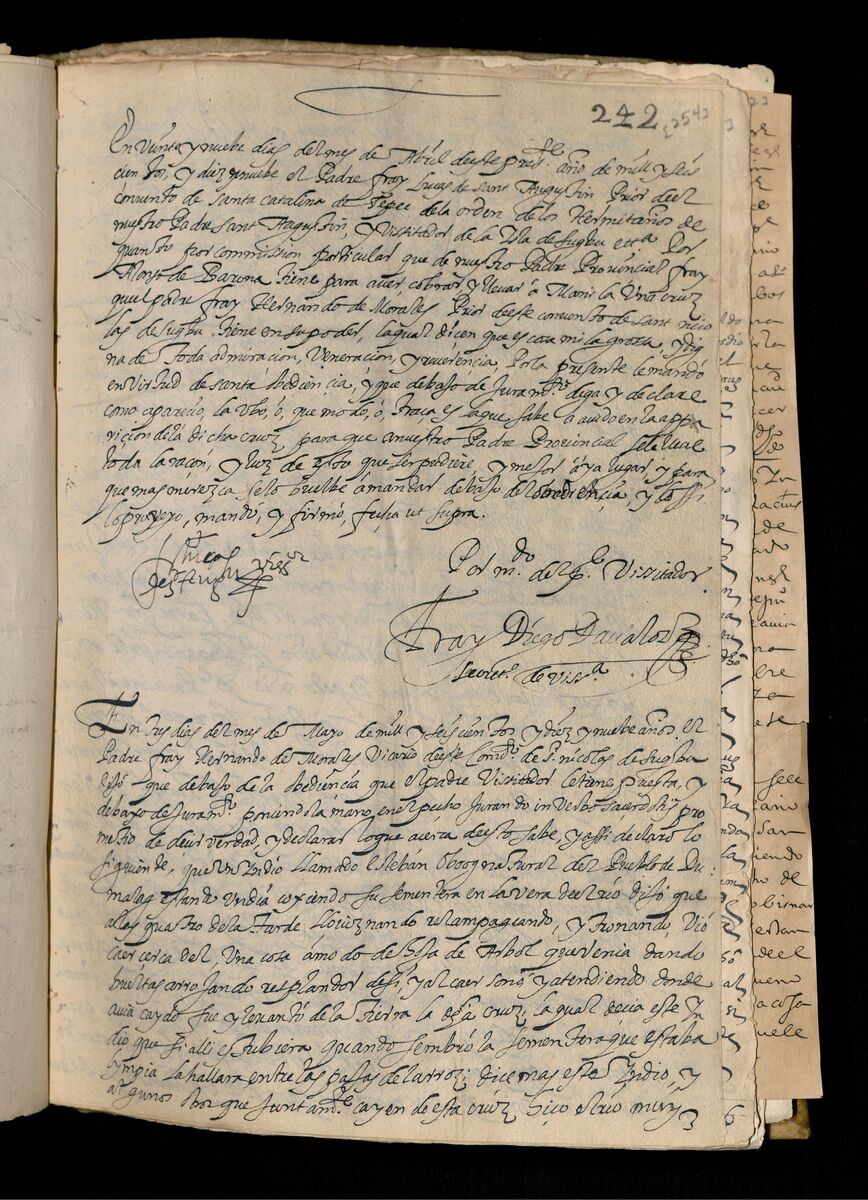 242
2542
En Veinte y nuebe dias del mes de Abril deste press.te año de mill y seis
cien tos, y diez y nuebe el Padre fray Lucas de sant Augustin Prior deel
conuento de santa catalina de Tepec de la orden de los Hermitaños de
nuestro Padre sant Augustin, y Vissitador de la Isla de Sugbu etta Por
quanto por commission particular que de nuestro Padre Prouincial fray
Alonso de Barona tiene para auer, cobrar, y lleuar â Manila Una cruz
que el padre fray Hernando de Morales Prior deeste conuento de sant nico
las de sugbu tiene en su poder, la qual dicen que es cosa milagrosa, y dig
na de toda admiracion, Veneracion, y reuerencia, Por la presente le mandô
en Virtud de santa obediencia, y que debaxo de Juram.to diga y declare
como aparecio, la Vbo, ô, que modo, ô, traça, es la que sabe a auido en la appa
ricion de la dicha cruz, para que a nuestro Padre Prouincial se le lleue
toda la racon, y luz de esto que ser pudiere, y mejor aya lugar, y para
que mas merezca se lo buelbe a mandar debaxo de obediencia, y lo assi
lo proveyo, mando, y firmó, fecha ut supra.
Por m.do del P.e Vissitador
Fray Diego Daualos
secret.o de viss.a
En tres dias del mes de Mayo de mill y seis cien tos y diez y nuebe años. el
Padre fray Hernando de Morales Vicario deeste Conu.to de S. nicolas de sugbu
dixó que debaxo de la obediencia que el padre Vissitador le tiene puesta, y
debaxo de Juram.to poniendo la mano en el pecho Jurando in Verbo sacerdotis pro
metio de decir verdad, y declarar lo que acerca deesto sabe, y assi declaró lo
siguiente, que Un Indio llamado Esteban Oboog natural del Pueblo de Du
malag estando Un dia coxiendo su sementera en la vera deel rio dixó que
a las quatro de la tarde lloviznando relampagueando, y tronando, Vió
caer cerca del, Una cosa âmodo de hoja de Arbol que venia dando
bueltas arrojando resplandor desi, y al caer sonó y atendiendo donde
auia caydo fue y leuantó de la tierra la esta cruz; la qual decia este In
dio que si alli estubiera quando sembró la sementera que estaba
lympia la hallara entre las pajas del arroz; dice mas este Indio, y
algunos Por que juntam.te cayendo esta cruz hiço el rio muy